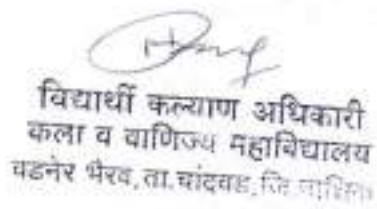 विद्यार्थी कल्याण अधिकारी
कला व वाणिज्य महाविद्यालय
वडनेर भैरव, ता. चांदवड, जि.